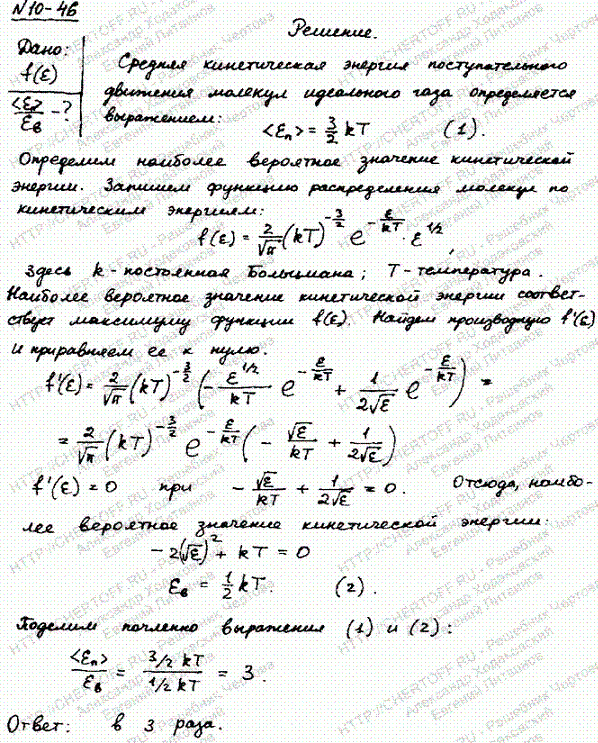 №10-46
Решение.
Дано:
f(ε)
<ε_п>/ε_в - ?
Средняя кинетическая энергия поступательного
движения молекул идеального газа определяется
выражением:
<ε_п> = 3/2 kT (1).
Определим наиболее вероятное значение кинетической
энергии. Запишем функцию распределения молекул по
кинетическим энергиям:
f(ε) = 2/√π (kT)^(-3/2) e^(-ε/kT) · ε^(1/2),
Здесь k - постоянная Больцмана; T - температура.
Наиболее вероятное значение кинетической энергии соответ-
ствует максимуму функции f(ε). Найдем производную f'(ε)
и приравняем ее к нулю.
f'(ε) = 2/√π (kT)^(-3/2) (-ε^(1/2)/kT e^(-ε/kT) + 1/(2√ε) e^(-ε/kT)) =
= 2/√π (kT)^(-3/2) e^(-ε/kT) (-√ε/kT + 1/(2√ε))
f'(ε) = 0 при -√ε/kT + 1/(2√ε) = 0. Отсюда, наибо-
лее вероятное значение кинетической энергии:
-2(√ε)^2 + kT = 0
ε_в = 1/2 kT. (2).
Поделим почленно выражения (1) и (2):
<ε_п>/ε_в = (3/2 kT)/(1/2 kT) = 3.
Ответ: в 3 раза.
HTTP://CHERTOFF.RU - Решебник Чертова
Александр Ходаковский
Евгений Литвинов